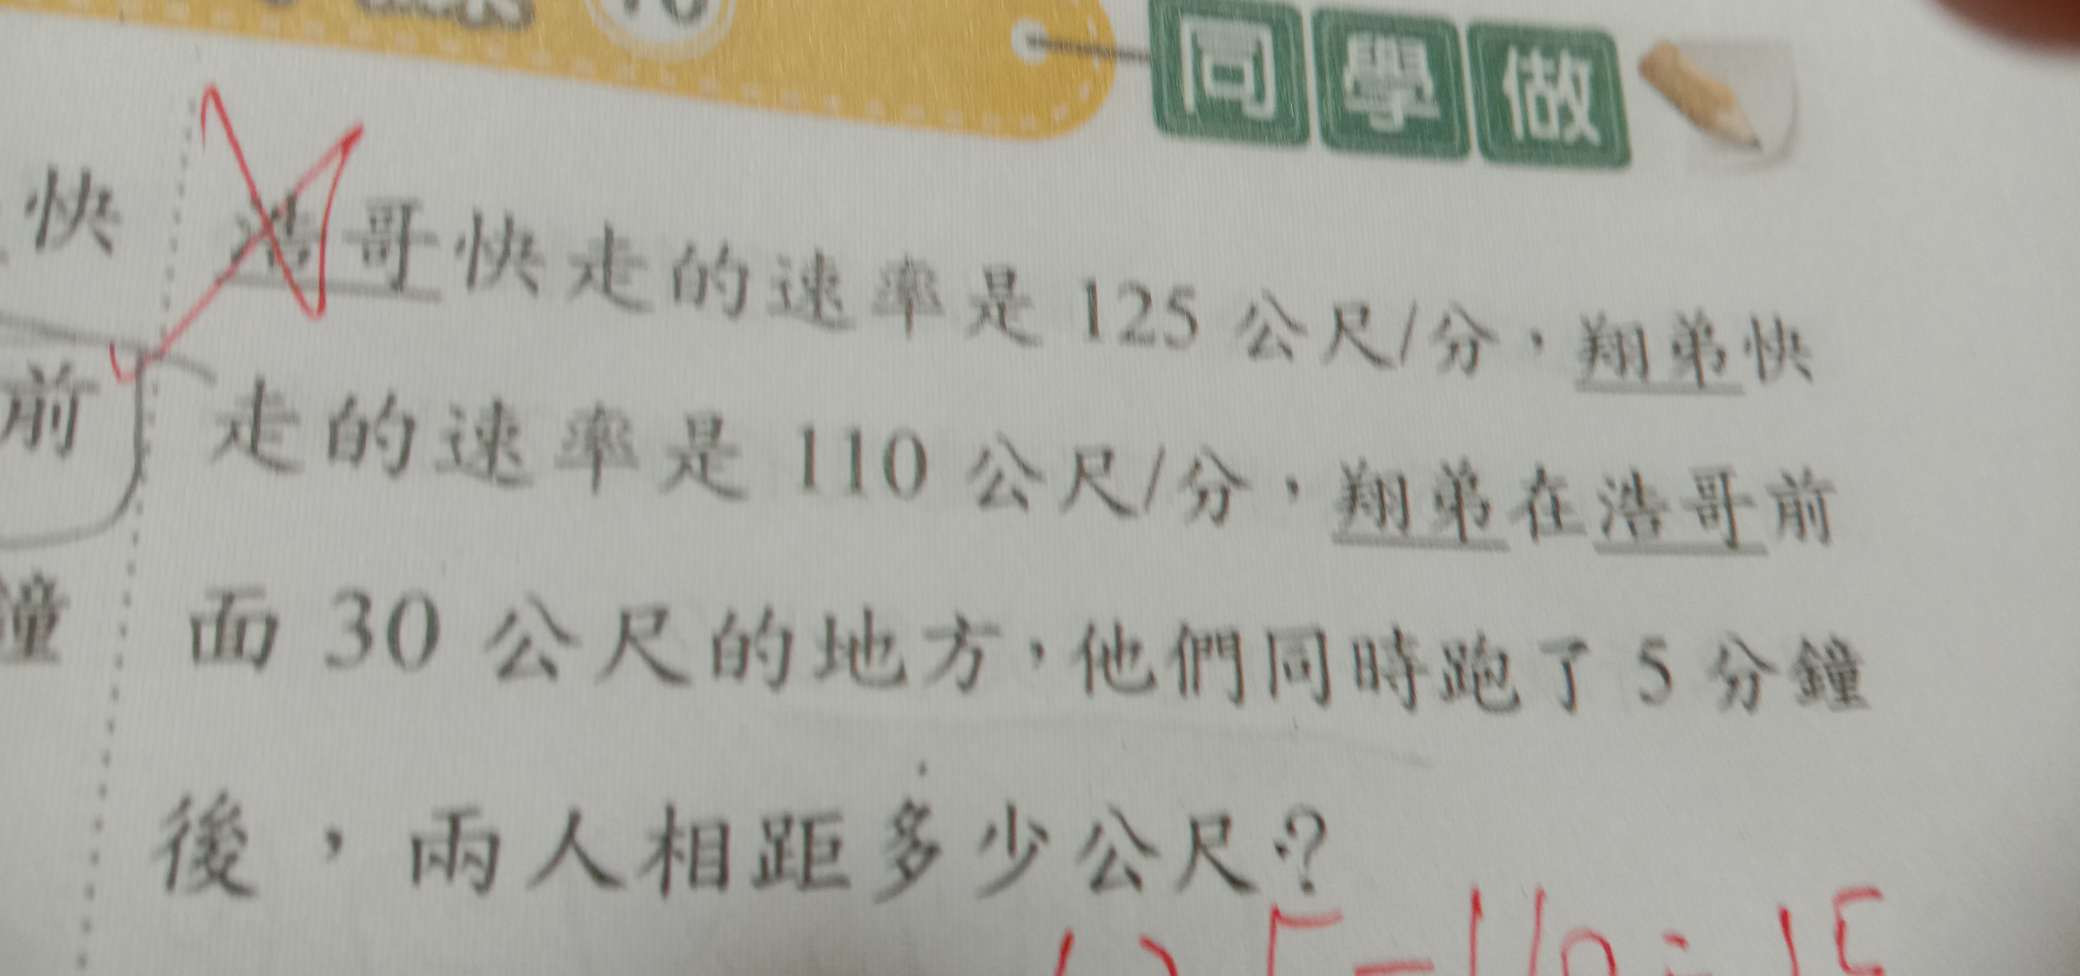 同學做
快
浩哥快走的速率是 125 公尺/分，翔弟快
前
走的速率是 110 公尺/分，翔弟在浩哥前
鐘
面 30 公尺的地方，他們同時跑了 5 分鐘
後，兩人相距多少公尺？
125-110=15